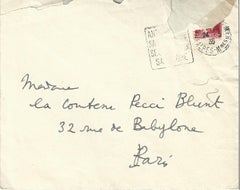 Madame
la Comtesse Pecci Blunt
32 rue de Babylone
Paris